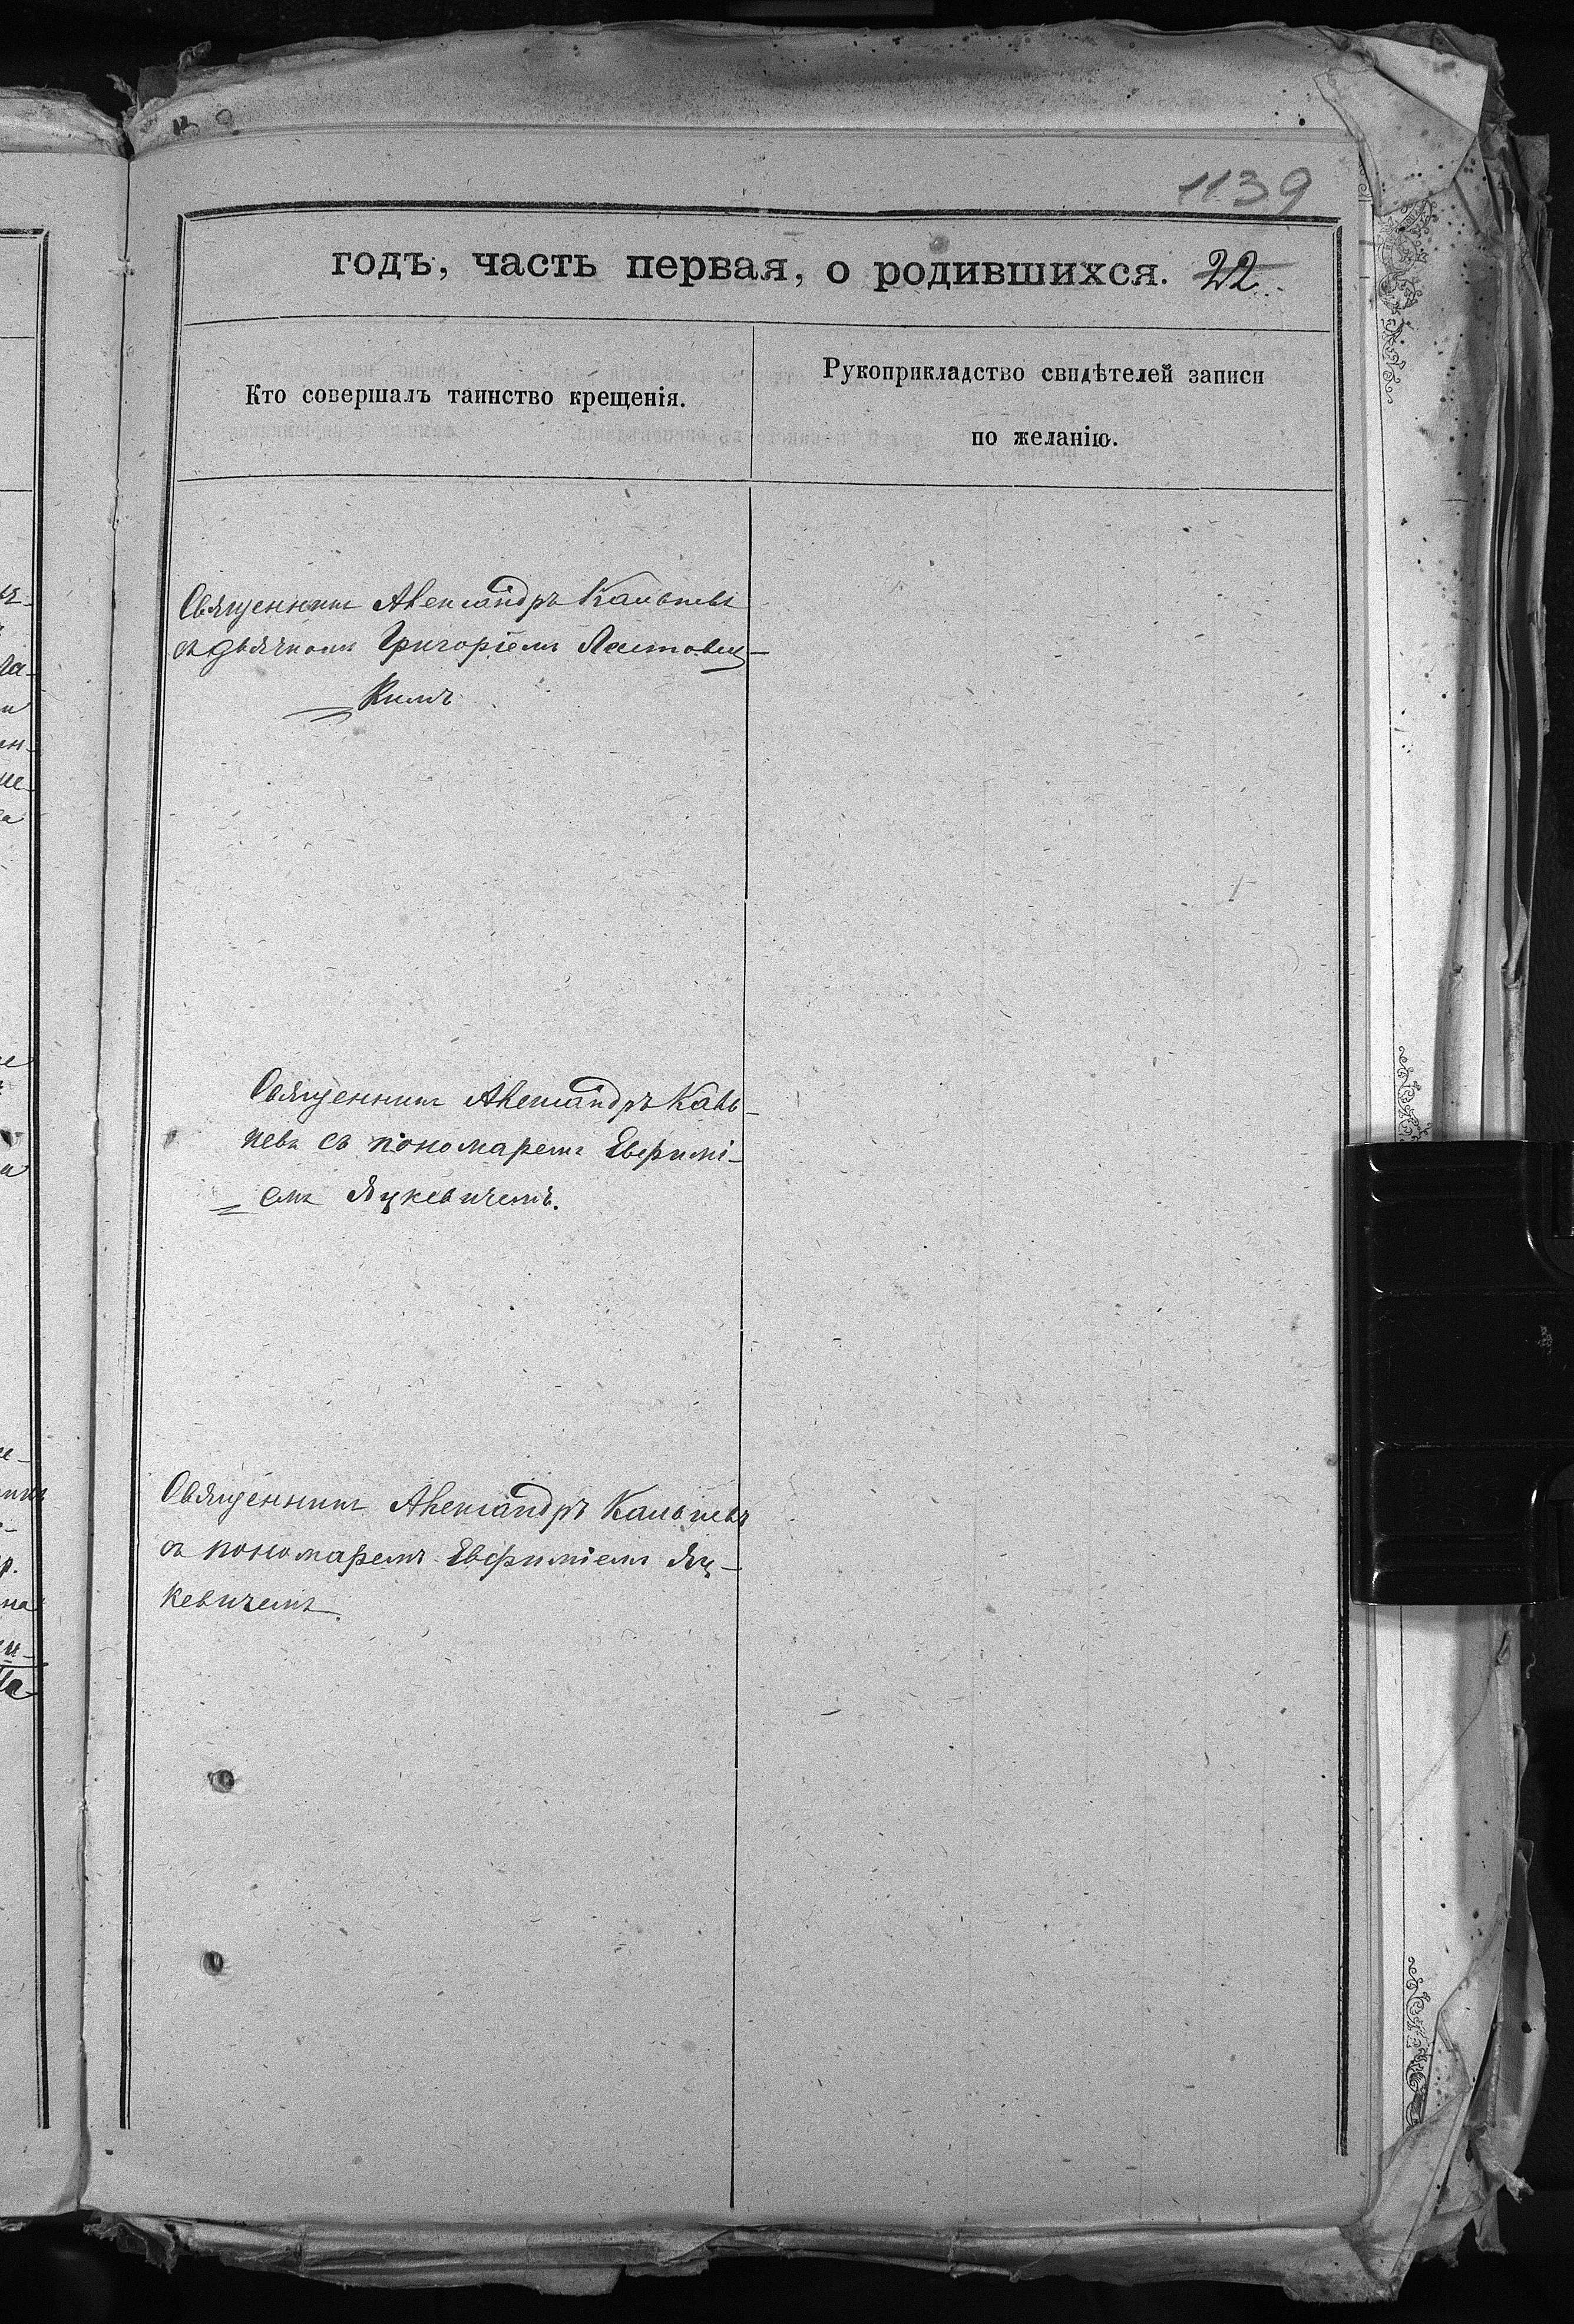 1139
годъ, часть первая, о родившихся. 22
Кто совершалъ таинство крещенія.
Рукоприкладство свидѣтелей записи
по желанію.
Священникъ Александръ Кальневъ
съ дьячкомъ Григоріемъ Ластовец-
кимъ
Священникъ Александръ Каль-
невъ съ пономаремъ Евфимі-
емъ Яцкевичемъ.
Священникъ Александръ Кальневъ
съ пономаремъ Евфиміемъ Яц-
кевичемъ.